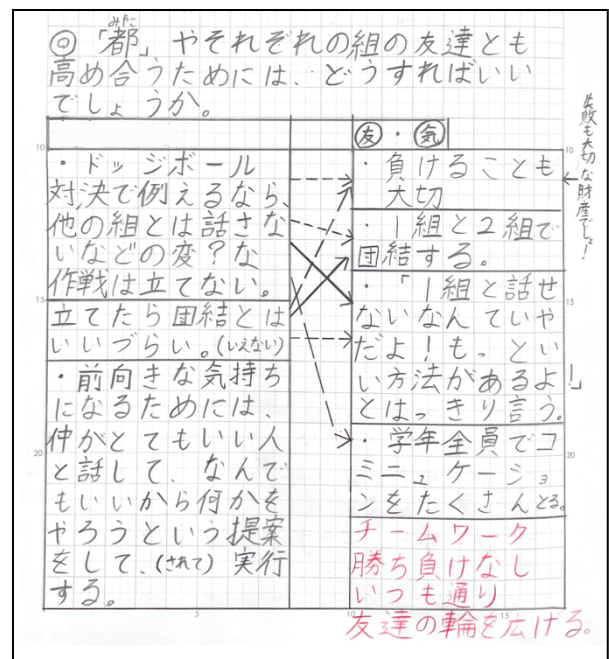 ◎「都」やそれぞれの組の友達とも
みやこ
高め合うためには、どうすればいい
でしょうか。
・ドッジボール
対決で例えるなら、
他の組とは話さな
いなどの変?な
作戦は立てない。
立てたら団結とは
いいづらい。(いえない)
・前向きな気持ち
になるためには、
仲がとてもいい人
と話して、なんで
もいいから何かを
やろうという提案
をして、(されて)実行
する。
友・気
・負けることも
大切
失敗も大切な財産でしょ!
・1組と2組で
団結する。
・「1組と話せ
ないなんていや
だよ!もっとい
い方法があるよ!」
とはっきり言う。
・学年全員でコ
ミニュケーショ
ンをたくさんとる。
チームワーク
勝ち負けなし
いつも通り
友達の輪を広げる。
10
15
20
5
10
15
10
15
20